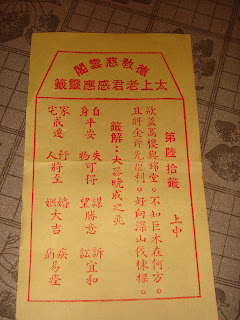 德教慈雲閣
太上老君感應靈籤
第陸拾籤 上中
欲蓋高樓與錦堂。不知巨木在何方。
且將金斧先磨利。好向深山伐棟樑。
籤解：大器晚成之兆
自身平安 失物可得 謀望勝意 訴訟宜和
家宅戒遷 行人將至 婚姻大吉 疾病易痊